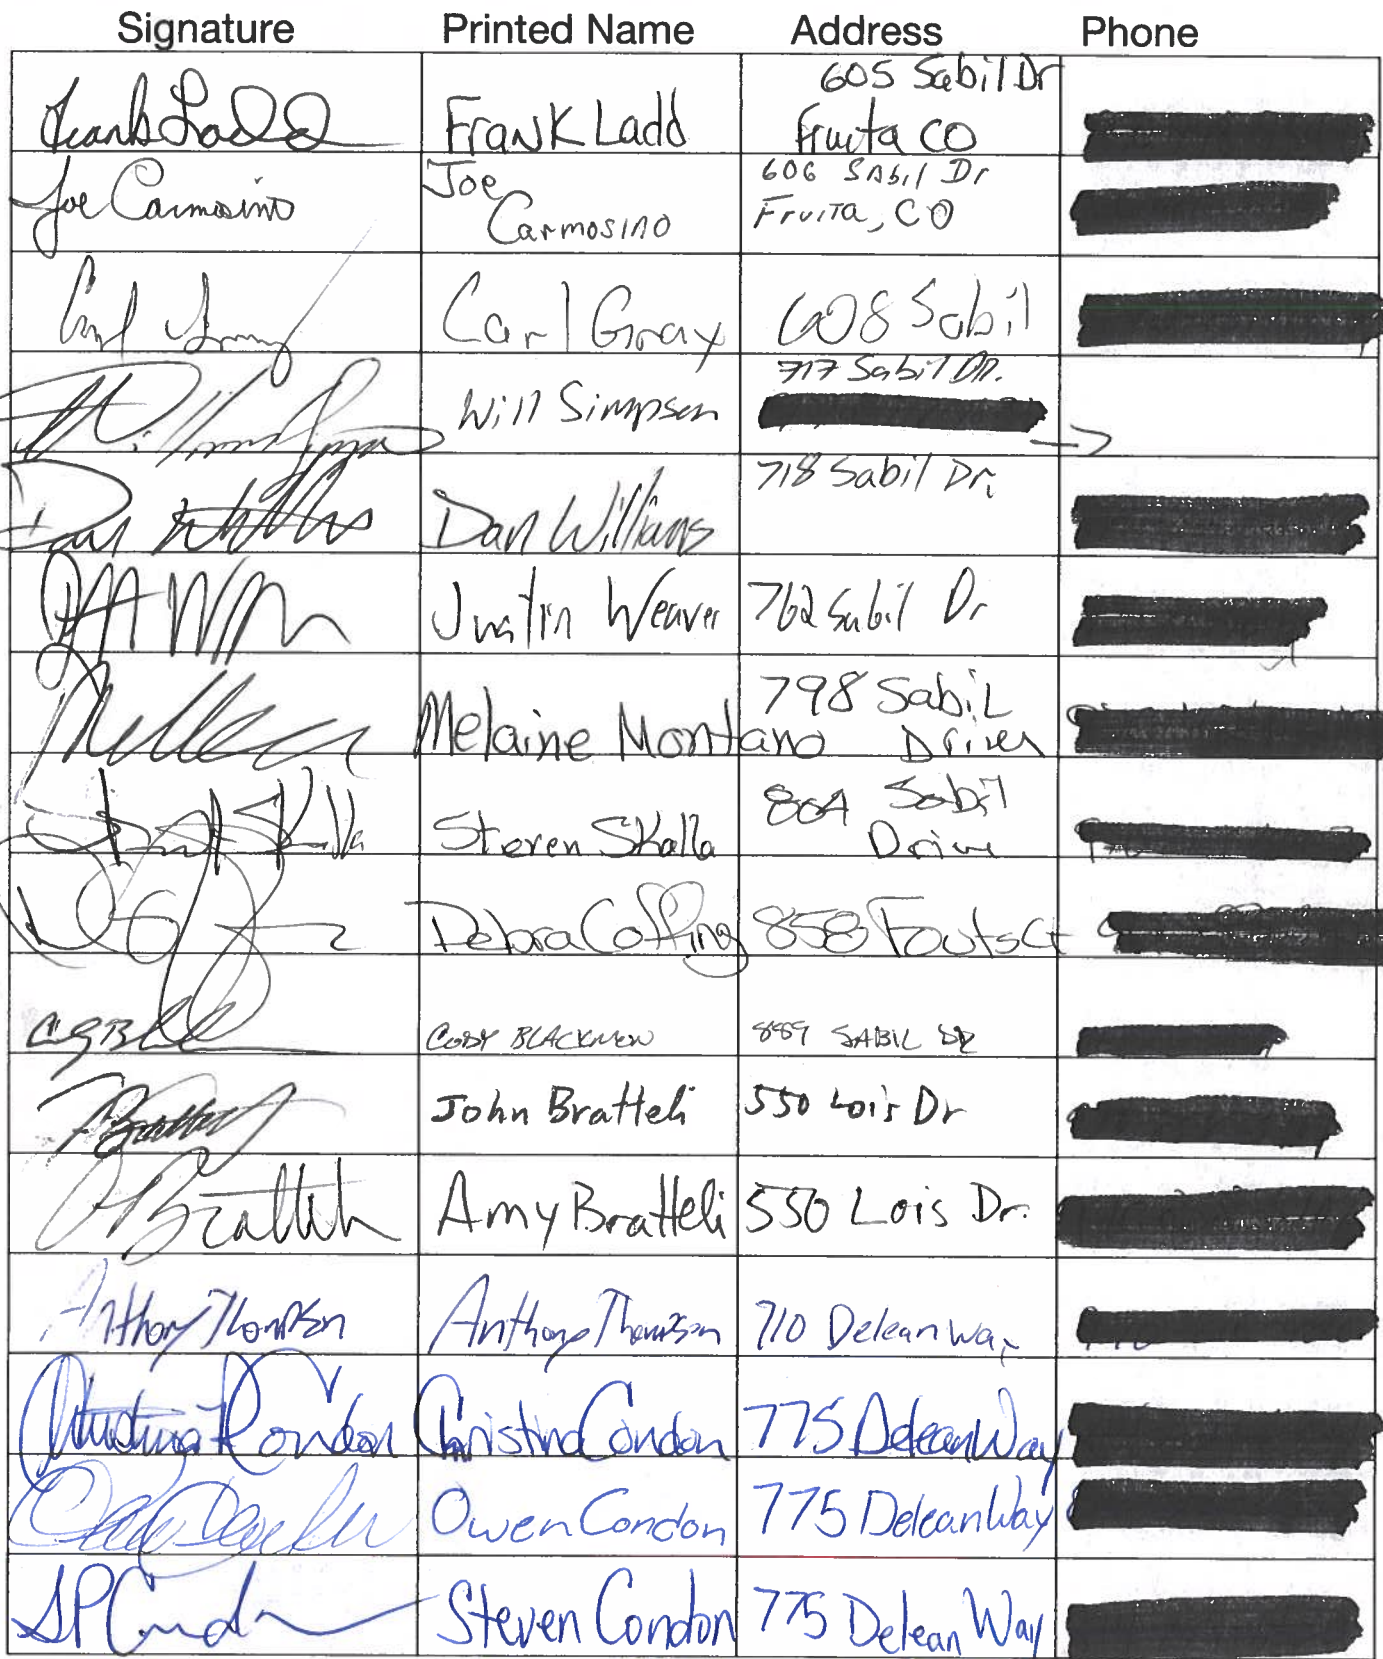 Signature Printed Name Address Phone
Frank Ladd Frank Ladd 605 Sabil Dr
Fruita CO
Joe Carmosino Joe Carmosino 606 Sabil Dr
Fruita, CO
Carl Gray Carl Gray 608 Sabil
Will Simpson 717 Sabil Dr.
Dan Williams Dan Williams 718 Sabil Dr.
Justin Weaver 762 Sabil Dr
Melaine Montano 798 Sabil
Drive
Skalla Steven Skalla 804 Sabil
Drive
Debra Coffing 858 Fouts Ct
CODY BLACKMON 889 SABIL DR
John Bratteli 550 Lois Dr
Bratteli Amy Bratteli 550 Lois Dr.
Anthony Thompson Anthony Thompson 710 Delean Way
Christina Condon Christina Condon 775 Delean Way
Owen Condon 775 Delean Way
SP Condon Steven Condon 775 Delean Way